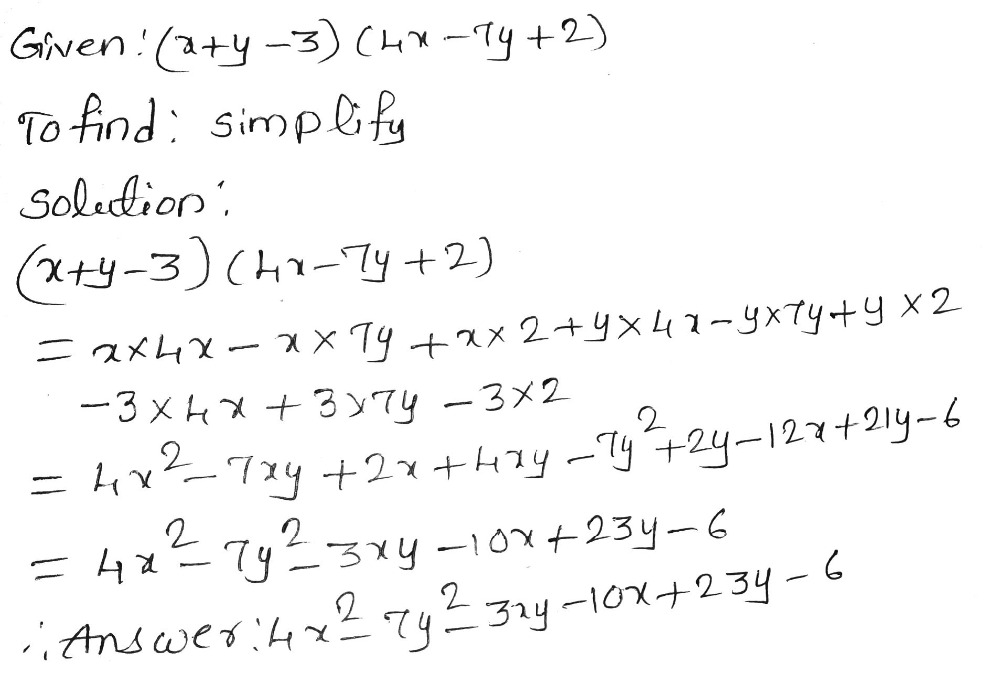 Given: (x+y-3) (4x-7y+2)
To find: simplify
Solution:
(x+y-3) (4x-7y+2)
= x×4x - x×7y + x×2 + y×4x - y×7y + y×2
-3×4x + 3×7y - 3×2
= 4x² - 7xy + 2x + 4xy - 7y² + 2y - 12x + 21y - 6
= 4x² - 7y² - 3xy - 10x + 23y - 6
∴ Answer: 4x² - 7y² - 3xy - 10x + 23y - 6